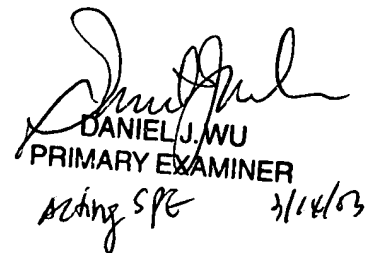 DANIEL J. WU
PRIMARY EXAMINER
Acting SPE 3/14/03